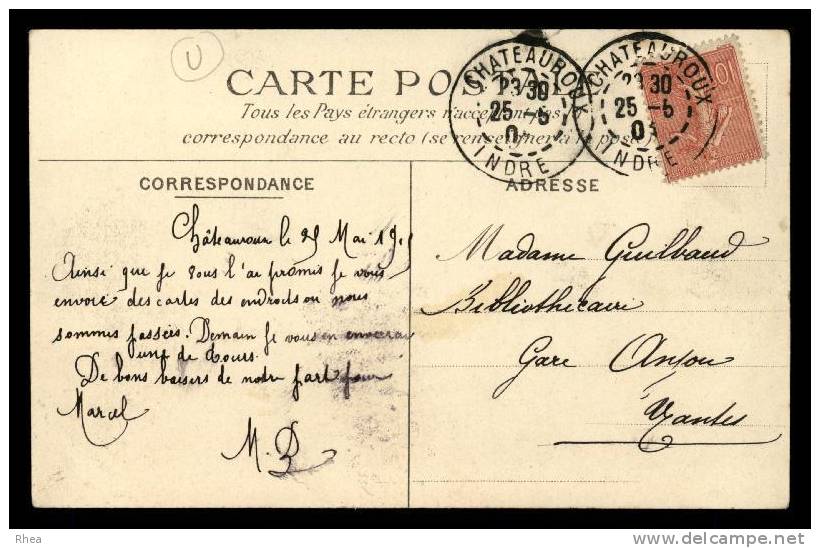 U
CARTE POSTALE
Tous les Pays étrangers n'acceptent pas
correspondance au recto (se renseigner à la poste)
CHATEAUROUX
23 30
25 - 5
0
INDRE
CHATEAUROUX
23 30
25 - 5
0
INDRE
10
CORRESPONDANCE
ADRESSE
Châteauroux le 25 Mai 19
Ainsi que je vous l'ai promis je vous
envoie des cartes des endroits ou nous
sommes passées. Demain je vous en enverrai
une de Tours.
De bons baisers de notre part pour
Marcel
M. D
Madame Guilbaud
Bibliothécaire
Gare Anjou
Nantes
Rhea
www.delcampe.net